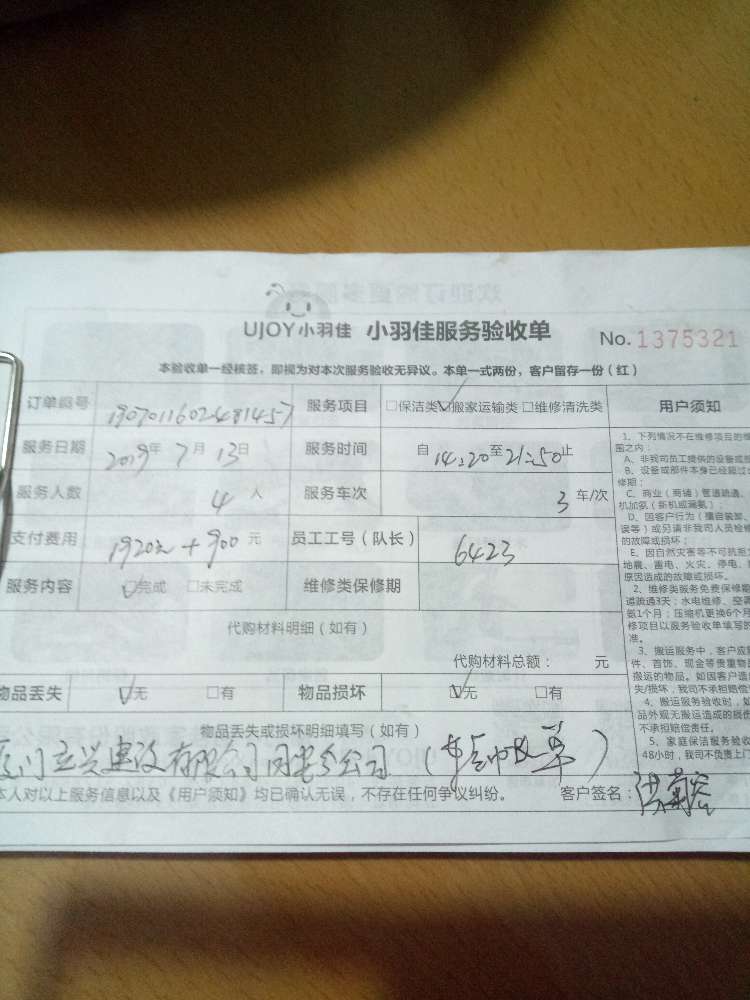 UJOY小羽佳 小羽佳服务验收单 No. 1375321
本验收单一经核签，即视为对本次服务验收无异议。本单一式两份，客户留存一份（红）
订单编号 1907011602481457 服务项目 □保洁类☑搬家运输类□维修清洗类 用户须知
服务日期 2019年7月13日 服务时间 自14:20至21:50止
服务人数 4人 服务车次 3车/次
支付费用 1920元+900元 员工工号（队长） 6423
服务内容 ☑完成 □未完成 维修类保修期
代购材料明细（如有）
代购材料总额： 元
物品丢失 ☑无 □有 物品损坏 ☑无 □有
物品丢失或损坏明细填写（如有）
建设有限公司同安分公司
本人对以上服务信息以及《用户须知》均已确认无误，不存在任何争议纠纷。 客户签名：
1、下列情况不在维修项目的
围之内：
A、非我司员工提供的设备或
B、设备或部件本身已经超过
修期；
C、商业（商铺）管道疏通、
机加氨（新机或漏氨）
D、因客户行为（擅自装卸、
误等）或另请非我司人员检修
的故障或损坏；
E、因自然灾害等不可抗拒
地震、雷电、火灾、停电、
原因造成的故障或损坏。
2、维修类服务免费保修期
道疏通3天；水电维修、空调
氨1个月；压缩机更换6个月
修项目以服务验收单填写的
准。
3、搬运服务中，客户应
件、首饰、现金等贵重物
搬运的物品。如因客户遗
失/损坏，我司不承担赔偿
4、搬运服务验收时，如
品外观无搬运造成的损
不承担赔偿责任。
5、家庭保洁服务验收
48小时，我司不负责上门